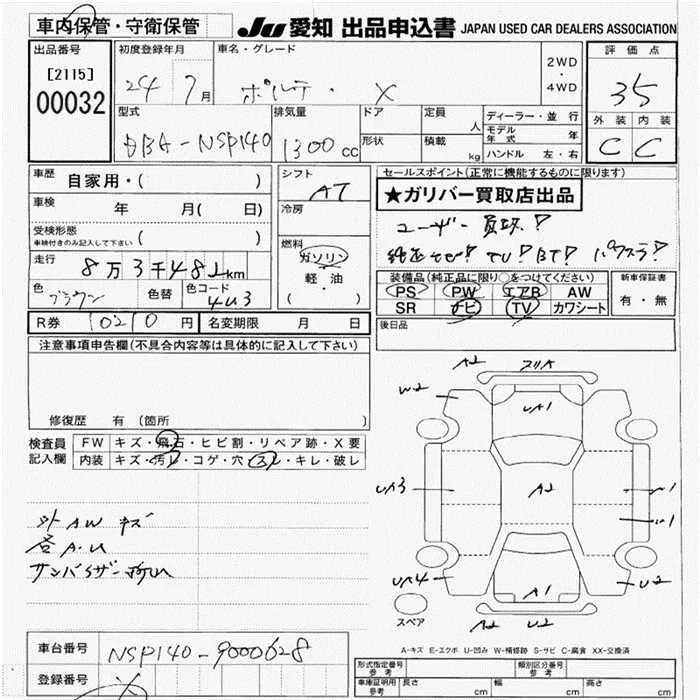 車内保管・守衛保管 JU 愛知 出品申込書 JAPAN USED CAR DEALERS ASSOCIATION
出品番号 初度登録年月 車名・グレード 評価点
[2115] 2WD
・
00032 24 7月 ポルテ . X 4WD 35
型式 排気量 ドア 定員 ディーラー・並行 外装 内装
人 モデル年式 年
DBA-NSP140 1300cc 形状 積載 kg ハンドル 左・右 C C
車歴 自家用・( ) シフト AT セールスポイント(正常に機能するものに限ります)
★ガリバー買取店出品
車検 年 月( 日) 冷房
ユーザー買取!
受検形態 ( )
車検付きのみ記入して下さい 燃料
純正ナビ! TV! BT! パワスラ!
走行 8万3千482km ガソリン
装備品(純正品に限り○をつけてください) 新車保証書
軽油
色 ブラウン 色替 色コード 4U3 ( )
PS PW エアB AW 有・無
SR ナビ TV カワシート
R券 10210円 名変期限 月 日
後日品
注意事項申告欄(不具合内容等は具体的に記入して下さい)
A2
W2
UA1
修復歴 有 (箇所 )
検査員 FW キズ・飛石・ヒビ割・リペア跡・X要
記入欄 内装 キズ・汚レ・コゲ・穴・スレ・キレ・破レ
UA3 A2
外AWキズ
各A.U
サンバイザー
UA4 A1 U2
スペア A2 U2
A-キズ E-エクボ U-凹み W-補修跡 S-サビ C-腐食 XX-交換済
車台番号 NSP140-9000628
登録番号
形式指定番号 参考 類別区分番号 参考
車庫証明用 参考 長さ cm 幅 cm 高さ cm